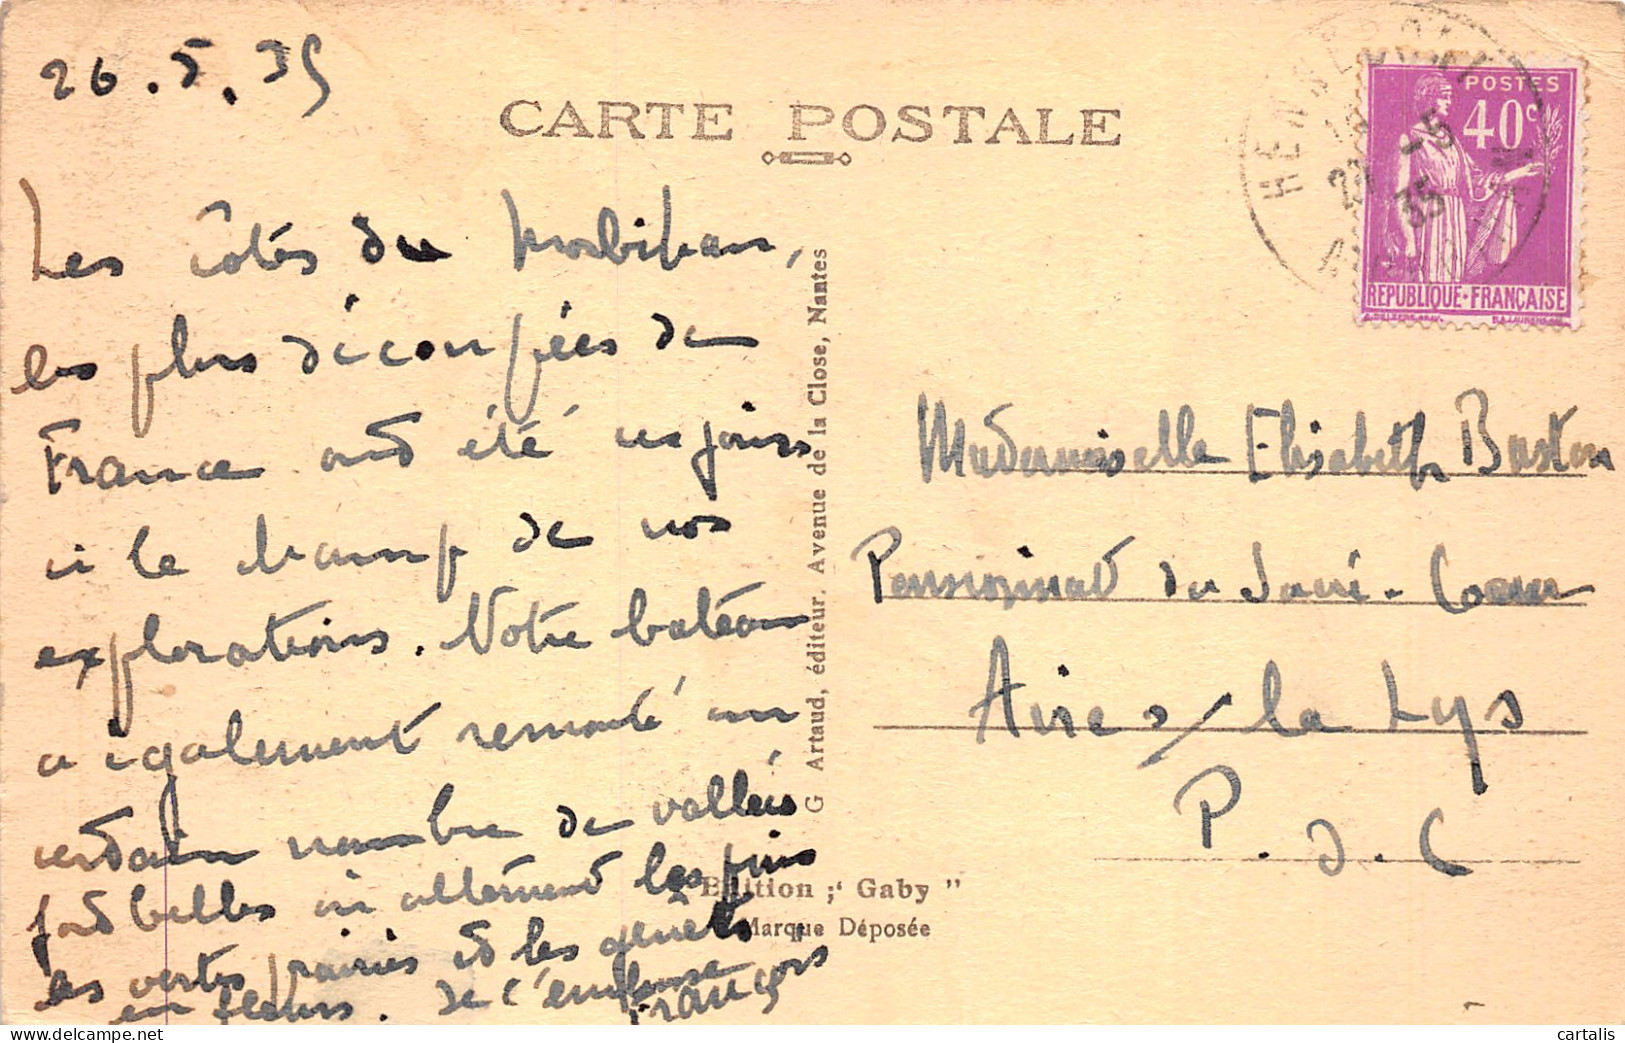 26.5.35
CARTE POSTALE
Les côtes du Morbihan,
les plus découpées de
France ont été ces jours
ci le champ de nos
explorations. Notre bateau
a également remonté un
certain nombre de vallées
fort belles où alternent les pins
les vertes prairies et les genêts
en fleurs. Je t'embrasse
François
G Artaud, éditeur. Avenue de la Close, Nantes
Edition ;' Gaby "
Marque Déposée
HENNEBONT
-5
35
POSTES
40c
REPUBLIQUE·FRANÇAISE
Mademoiselle Elisabeth
Pensionnat du Sacré-Coeur
Aire s/ la Lys
P.d.C
cartalis